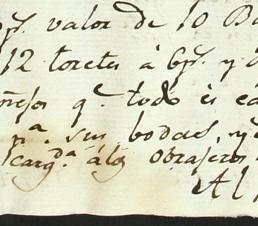 ps. valor de 10 Ba
12 toretes á 6ps. y
q.e todo es
pa. sus bodas, y
carg.da álos obrajeros
Al